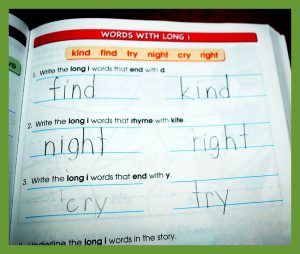 WORDS WITH LONG i
kind find try night cry right
1. Write the long i words that end with d.
find kind
2. Write the long i words that rhyme with kite.
night right
3. Write the long i words that end with y.
cry try
Underline the long i words in the story.